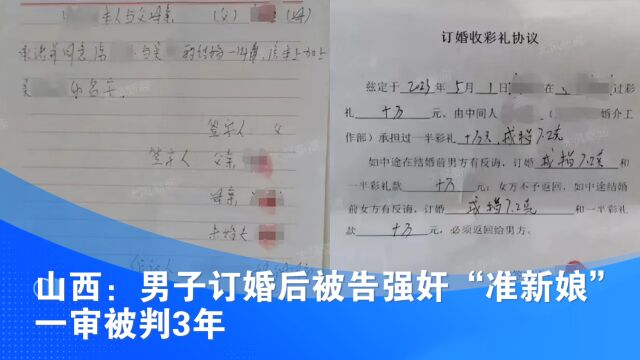 主人与父母亲
（父）
（母）
承诺并同意席
与吴
的结婚一年后，房本上加上
吴
的名字。
签字人
父
签字人
父亲
母亲
未婚夫
订婚收彩礼协议
兹定于2023年5月1日
在
过彩
礼 十万 元、由中间人
（
婚介工
作部）承担过一半彩礼 十万元，戒指7.2克
如中途在结婚前男方有反诲，订婚 戒指7.2克 和
一半彩礼款 十万 元，女方不予返回，如中途结婚
前女方有反诲，订婚 戒指7.2克 和一半彩礼
款 十万 元，必须返回给男方。
山西：男子订婚后被告强奸“准新娘”
一审被判3年